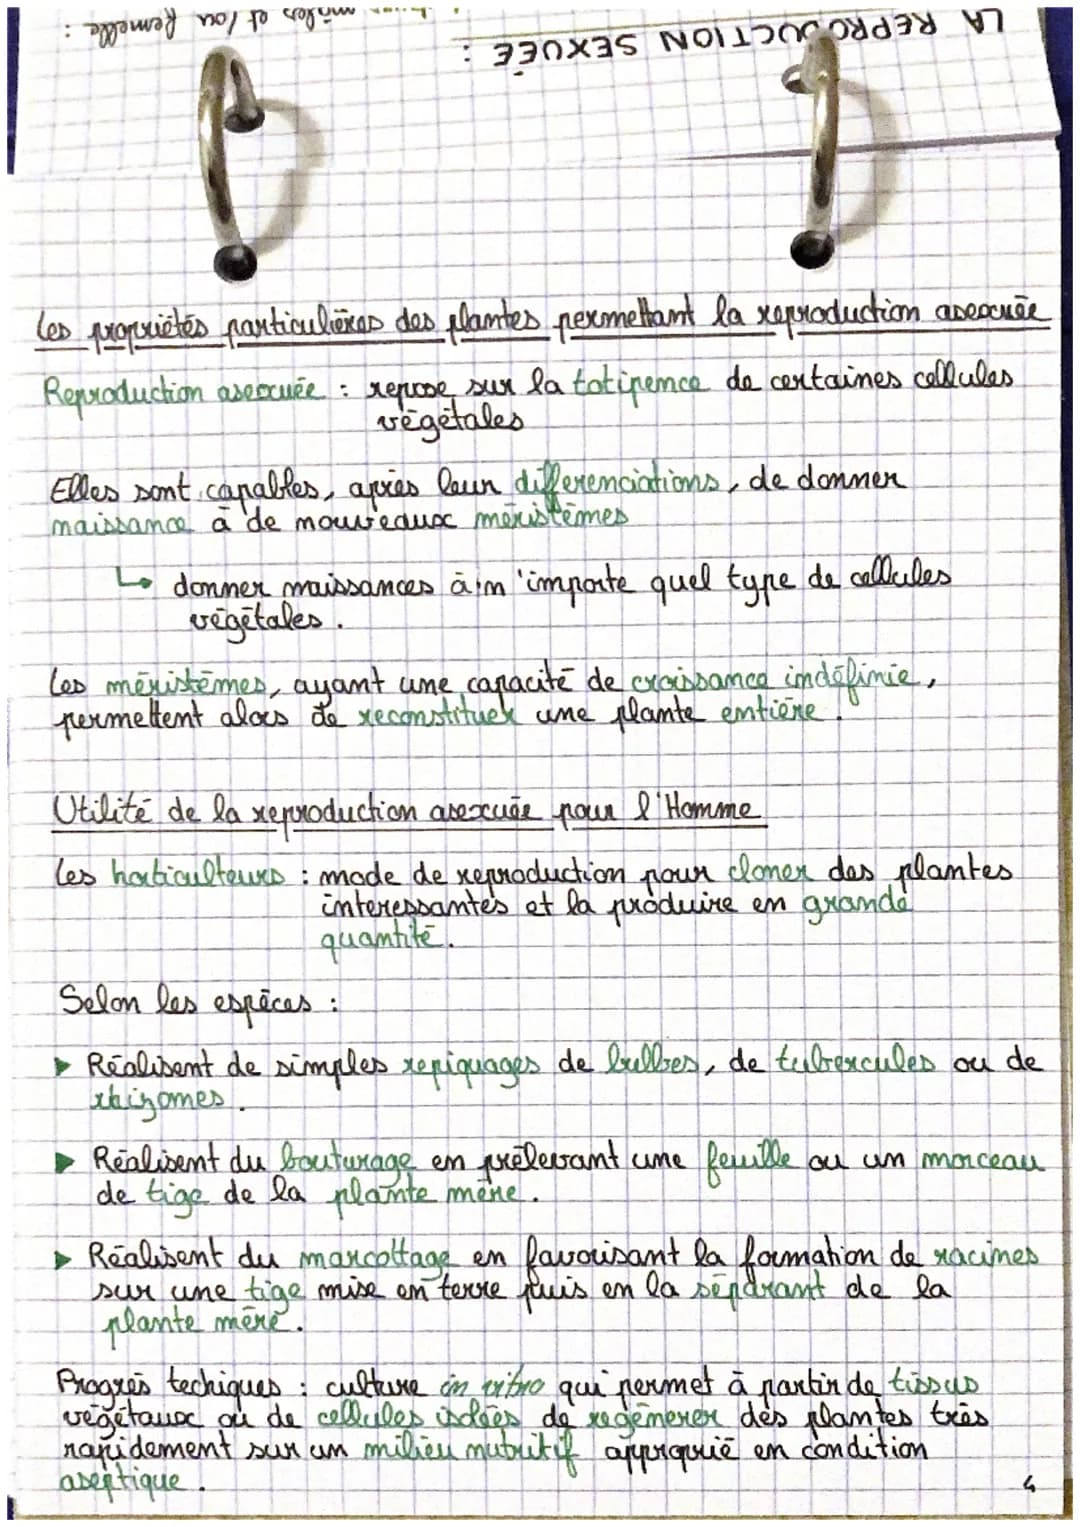 LA REPRODUCTION SEXUÉE :
mâles et/ou femelle :
Les propriétés particulières des plantes permettant la reproduction asexuée
Reproduction asexuée : repose sur la totipence de certaines cellules
végétales
Elles sont capables, après leur differenciations, de donner
naissance à de nouveaux méristèmes
↳ donner naissances à n'importe quel type de cellules
végétales.
Les méristèmes, ayant une capacité de croissance indéfinie,
permettent alors de reconstituer une plante entière.
Utilité de la reproduction asexuée pour l'Homme
Les horticulteurs : mode de reproduction pour cloner des plantes
interessantes et la produire en grande
quantité.
Selon les espèces :
▶ Réalisent de simples repiquages de bulbes, de tubercules ou de
rhizomes.
▶ Réalisent du bouturage en prélevant une feuille ou un morceau
de tige de la plante mère.
▶ Réalisent du marcottage en favorisant la formation de racines
sur une tige mise en terre puis en la séparant de la
plante mère.
Progrès techiques : culture in vitro qui permet à partir de tissus
végétaux ou de cellules isolées de regénerer des plantes très
rapidement sur un milieu nutritif en condition
aseptique.
4